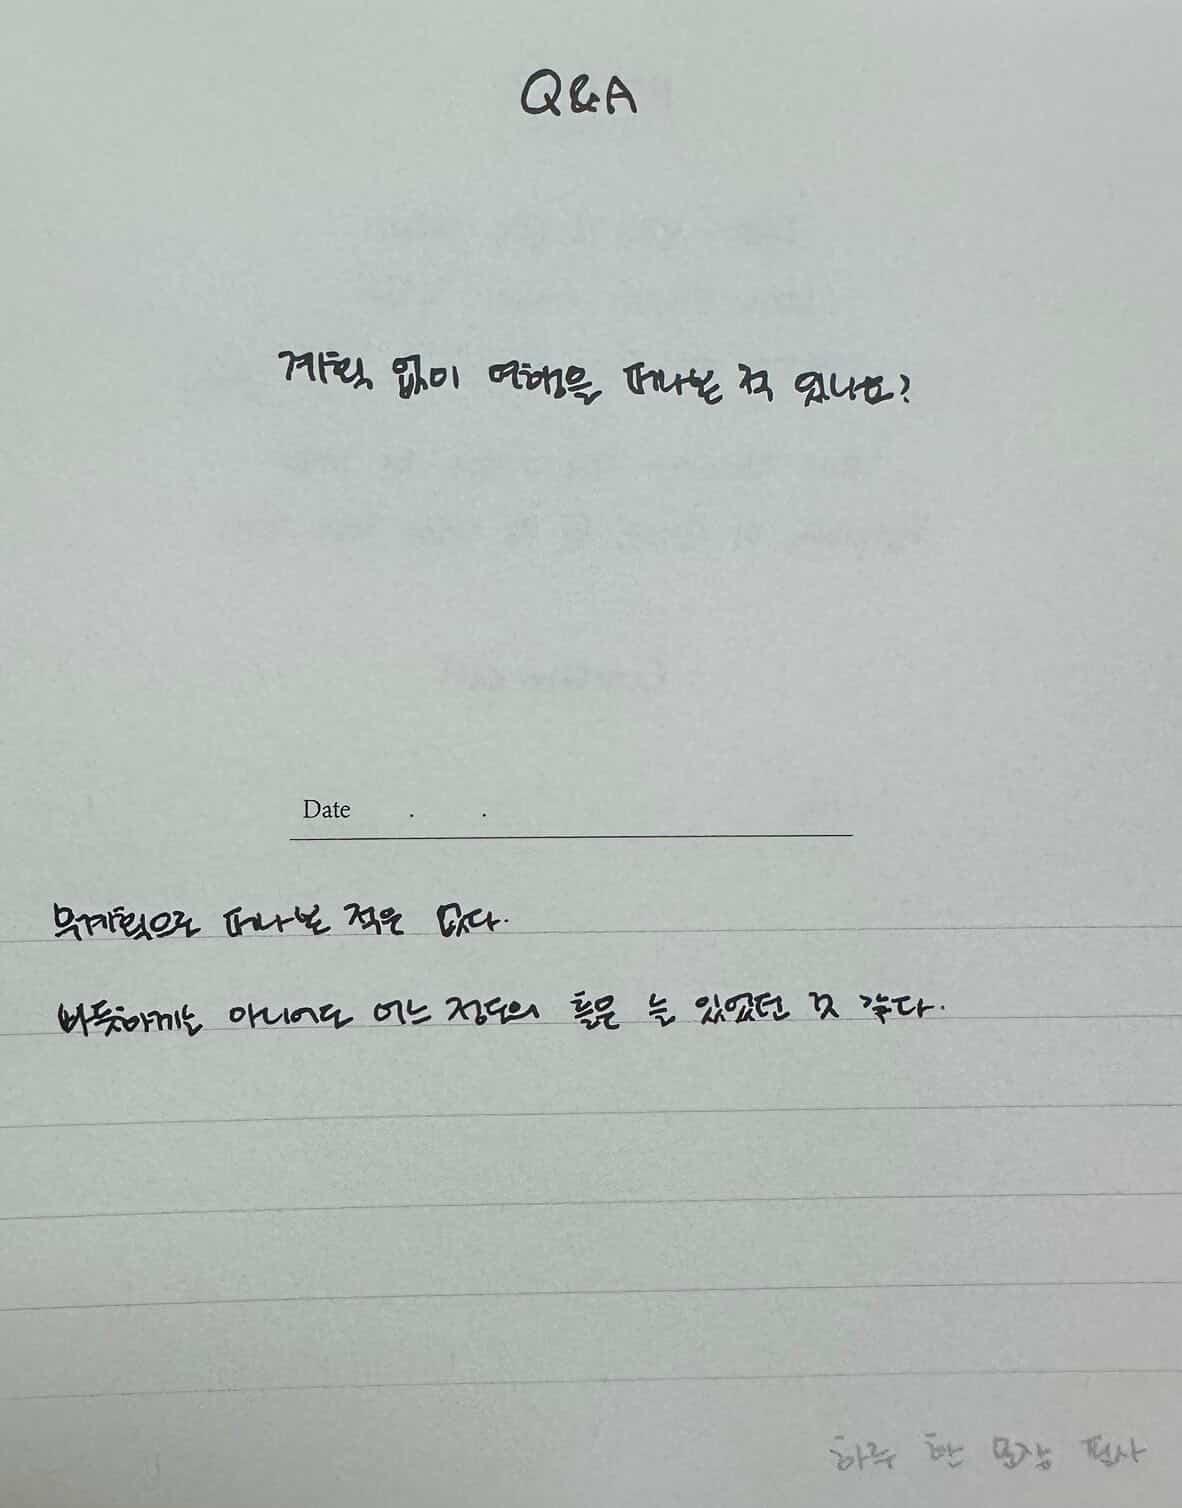 Q&A
계획 없이 여행을 떠나본 적 있나요?
Date . .
무계획으로 떠나본 적은 없다.
빠듯하게는 아니어도 어느 정도의 틀은 늘 있었던 것 같다.
하루 한 문장 필사